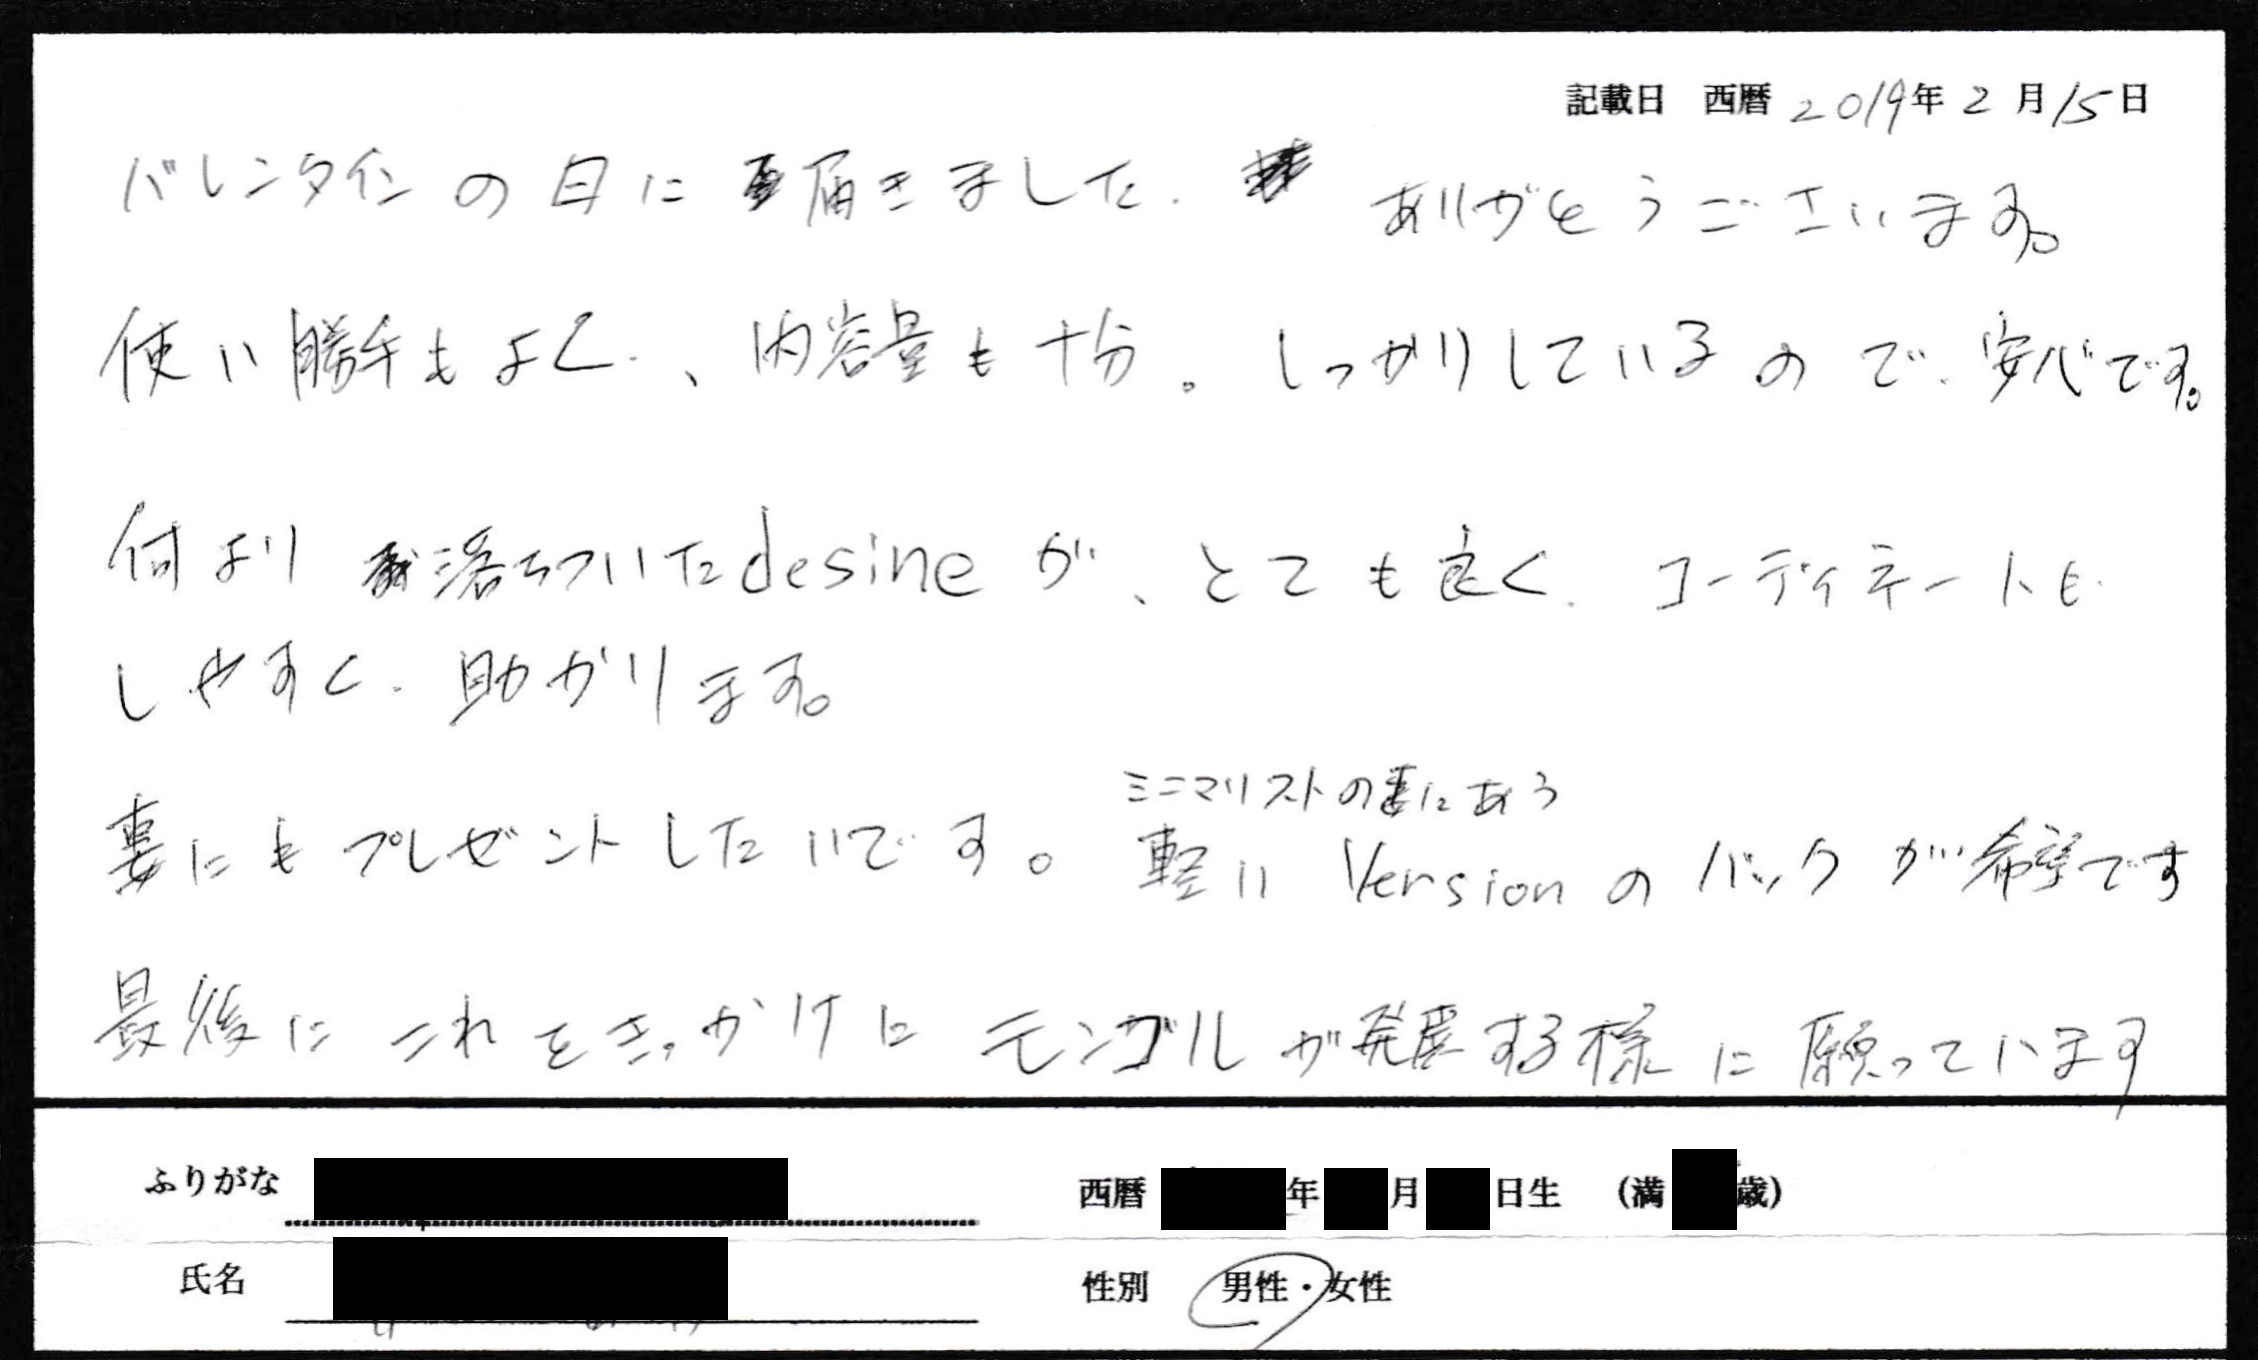 記載日 西暦 2019年 2月 15日
バレンタインの日に届きました. ありがとうございます。
使い勝手もよく、内容量も十分。しっかりしているので、安心です。
何より 落ちついたdesineが、とても良く、コーディネートも
しやすく、助かります。
ミニマリストの妻にあう
妻にもプレゼントしたいです。軽い Versionの バックが希望です
最後に これをきっかけに モンゴルが発展する様に願っています
ふりがな 西暦 年 月 日生 (満 歳)
氏名 性別 男性・女性